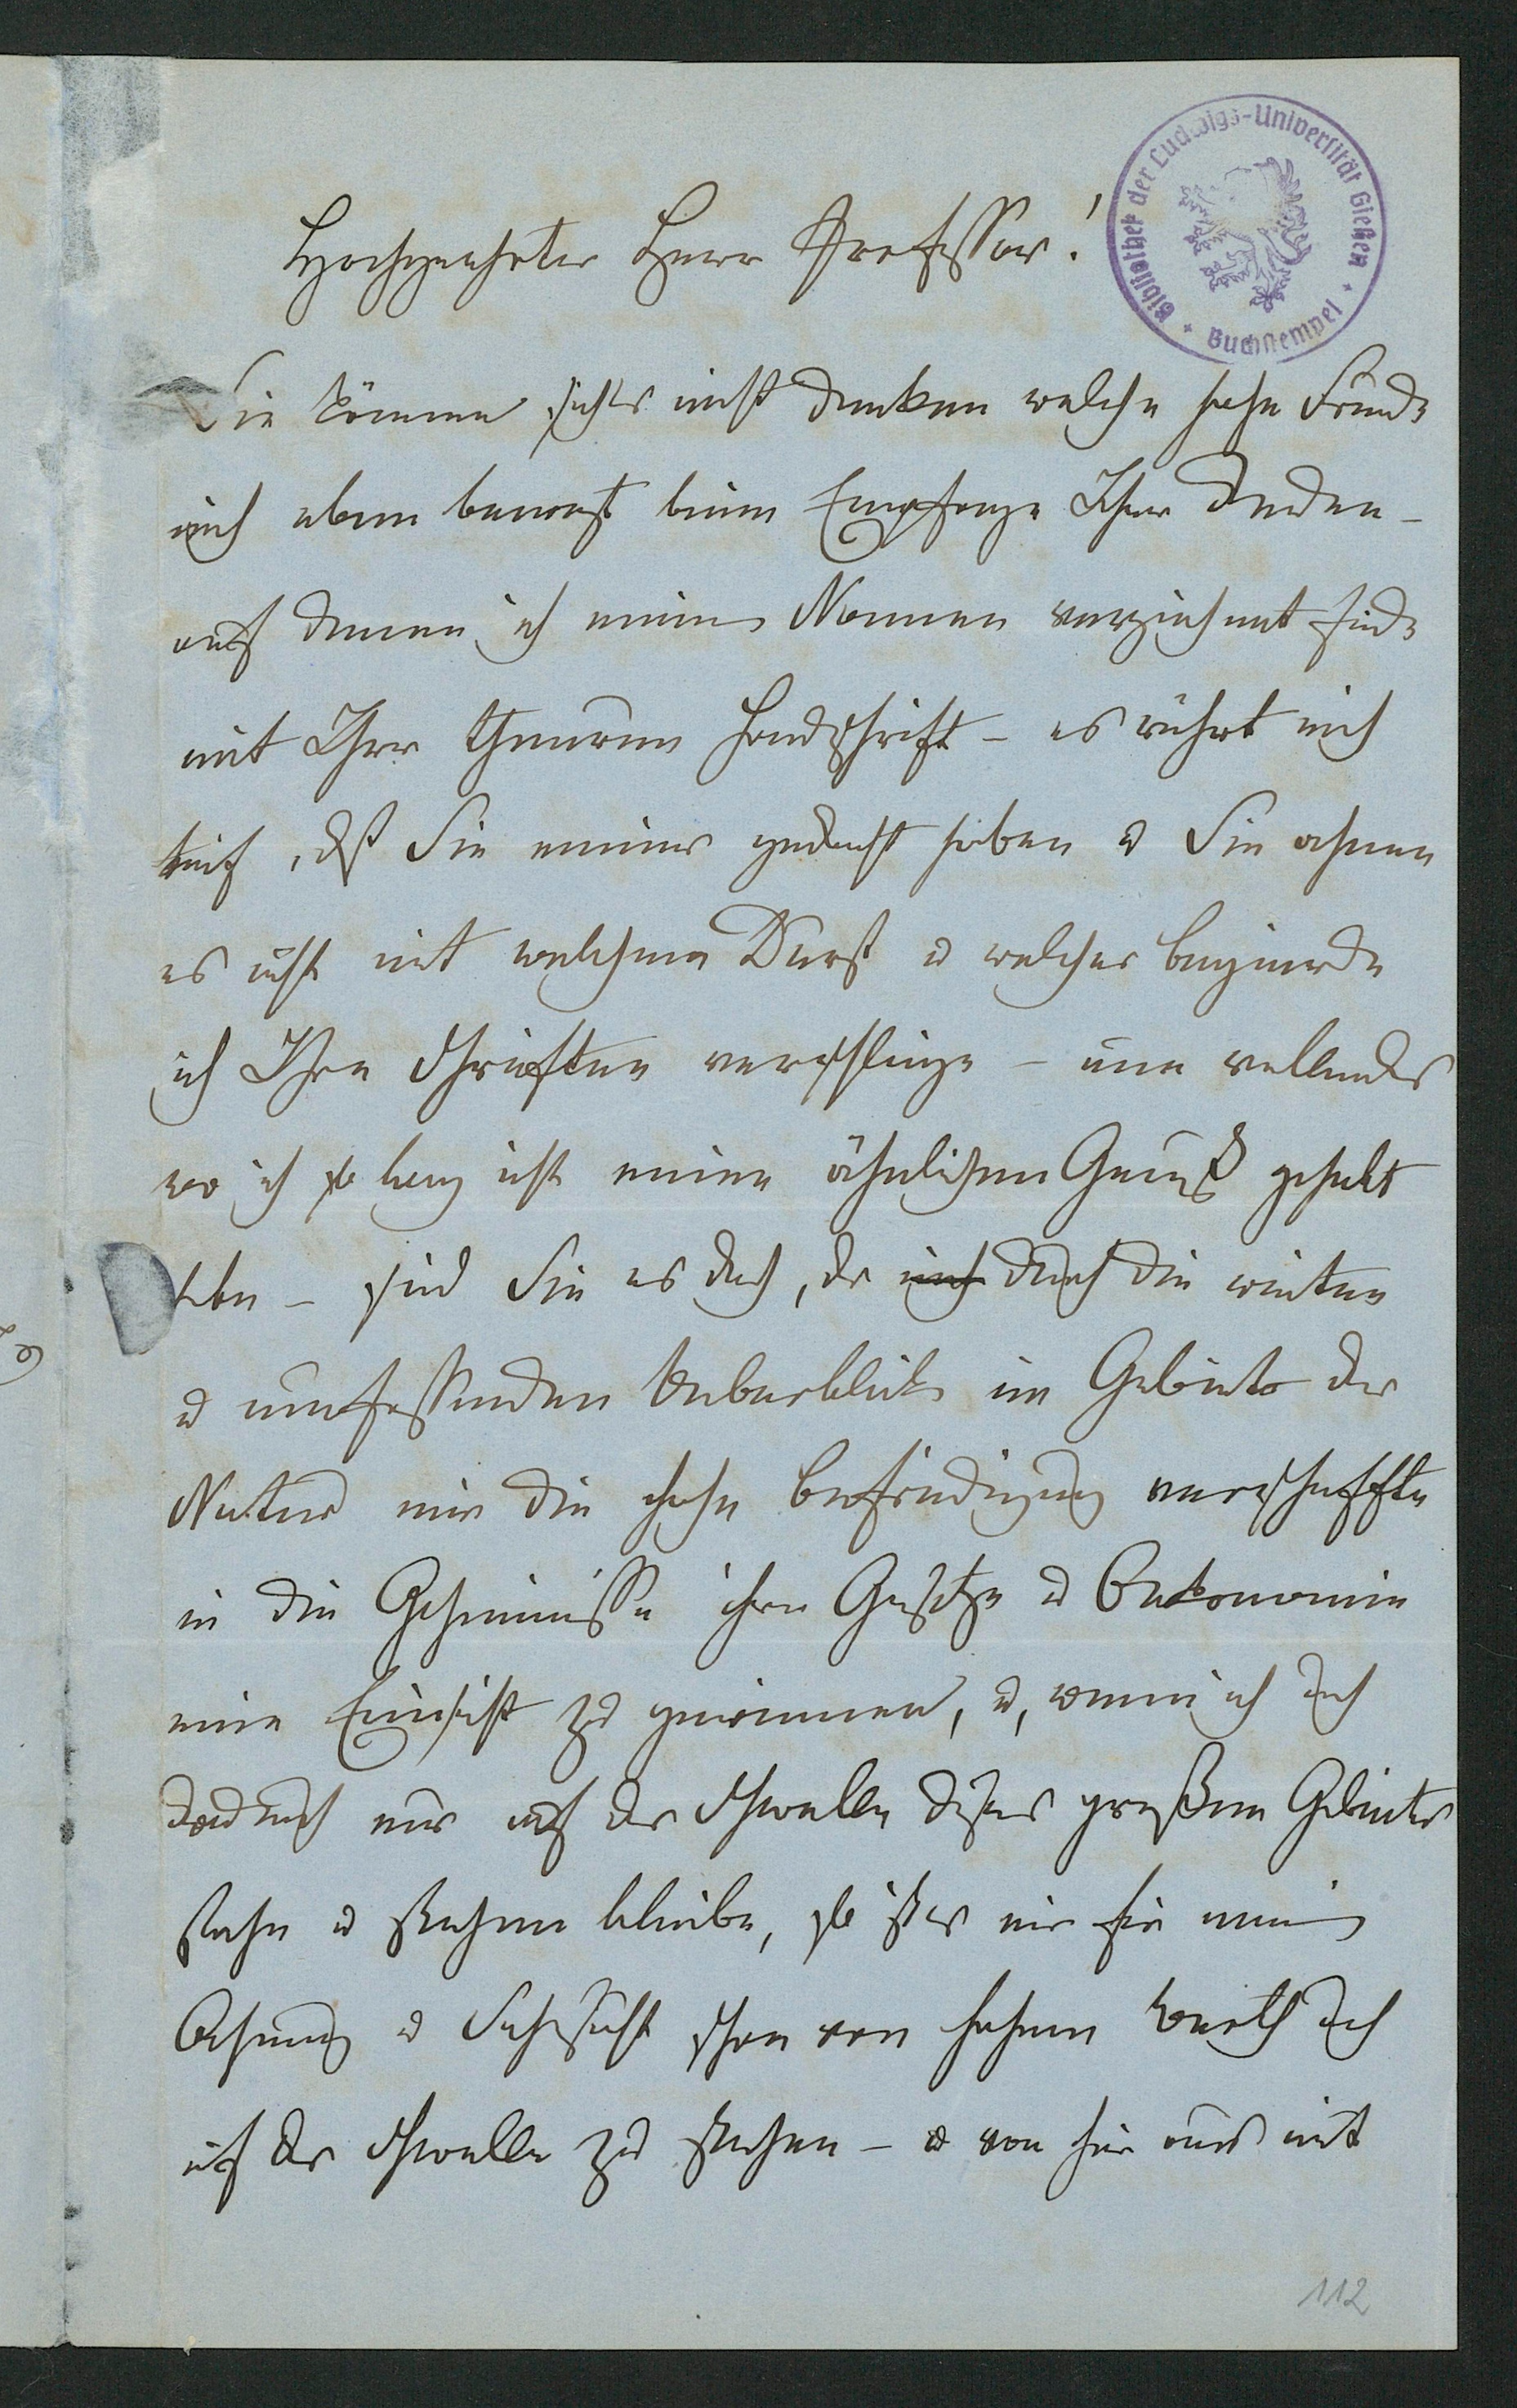 Bibliothek der Ludwigs-Universität Gießen
Buchstempel
Hochgeehrter Herr Professor!
Sie können sichs nicht denken welche hohe Freude
mich eben bewegt beim Empfange Ihrer Reden –
auf denen ich meinen Namen verzeichnet finde
mit Ihrer theuren Handschrift – es rührt mich
tief, dß Sie meiner gedacht haben u Sie ahnen
es nicht mit welchem Durst u welcher Begierde
ich Ihre Schriften verschlinge – nun vollends
wo ich so lang nicht einen ähnlichen Genuß gehabt
habe – sind Sie es doch, der mich durch die weiten
u umfassenden Ueberblicke im Gebiete der
Natur mir die hohe Befriedigung verschaffte
in die Geheimnisse ihrer Gesetze u Oekonomie
eine Einsicht zu gewinnen, u, wenn ich auch
dadurch nur auf der Schwelle dieses großen Gebietes
stehe u stehen bleibe, so ist es mir für meine
Ahnung u Sehnsucht schon von hohem Werth auch
auf der Schwelle zu stehen – u von hier aus mit
112